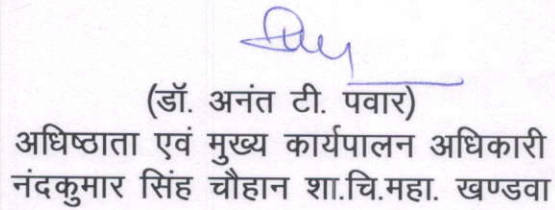 (डॉ. अनंत टी. पवार)
अधिष्ठाता एवं मुख्य कार्यपालन अधिकारी
नंदकुमार सिंह चौहान शा.चि.महा. खण्डवा